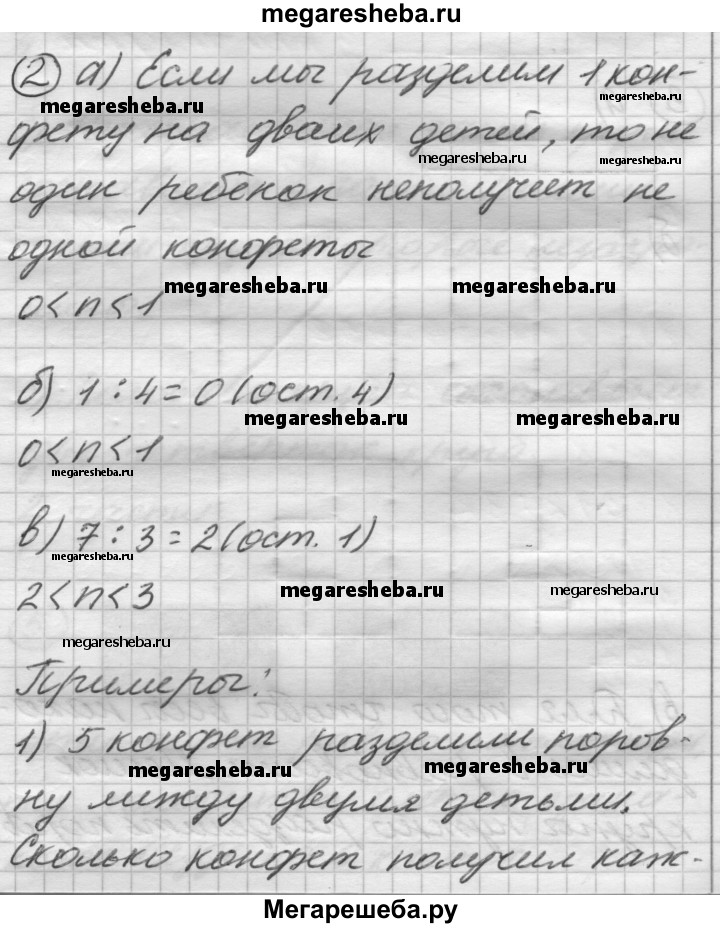 megaresheba.ru
2 а) Если мы разделим 1 кон-
megaresheba.ru megaresheba.ru
фету на двоих детей, то не
megaresheba.ru megaresheba.ru
один ребёнок неполучет не
одной конфеты
megaresheba.ru megaresheba.ru
0 < n < 1
б) 1 : 4 = 0 (ост. 4)
megaresheba.ru megaresheba.ru
0 < n < 1
megaresheba.ru
в) 7 : 3 = 2 (ост. 1)
megaresheba.ru
2 < n < 3
megaresheba.ru megaresheba.ru
megaresheba.ru
Примеры:
1) 5 конфет разделили поров-
megaresheba.ru megaresheba.ru
ну между двумя детьми.
Сколько конфет получил каж-
Мегарешеба.ру